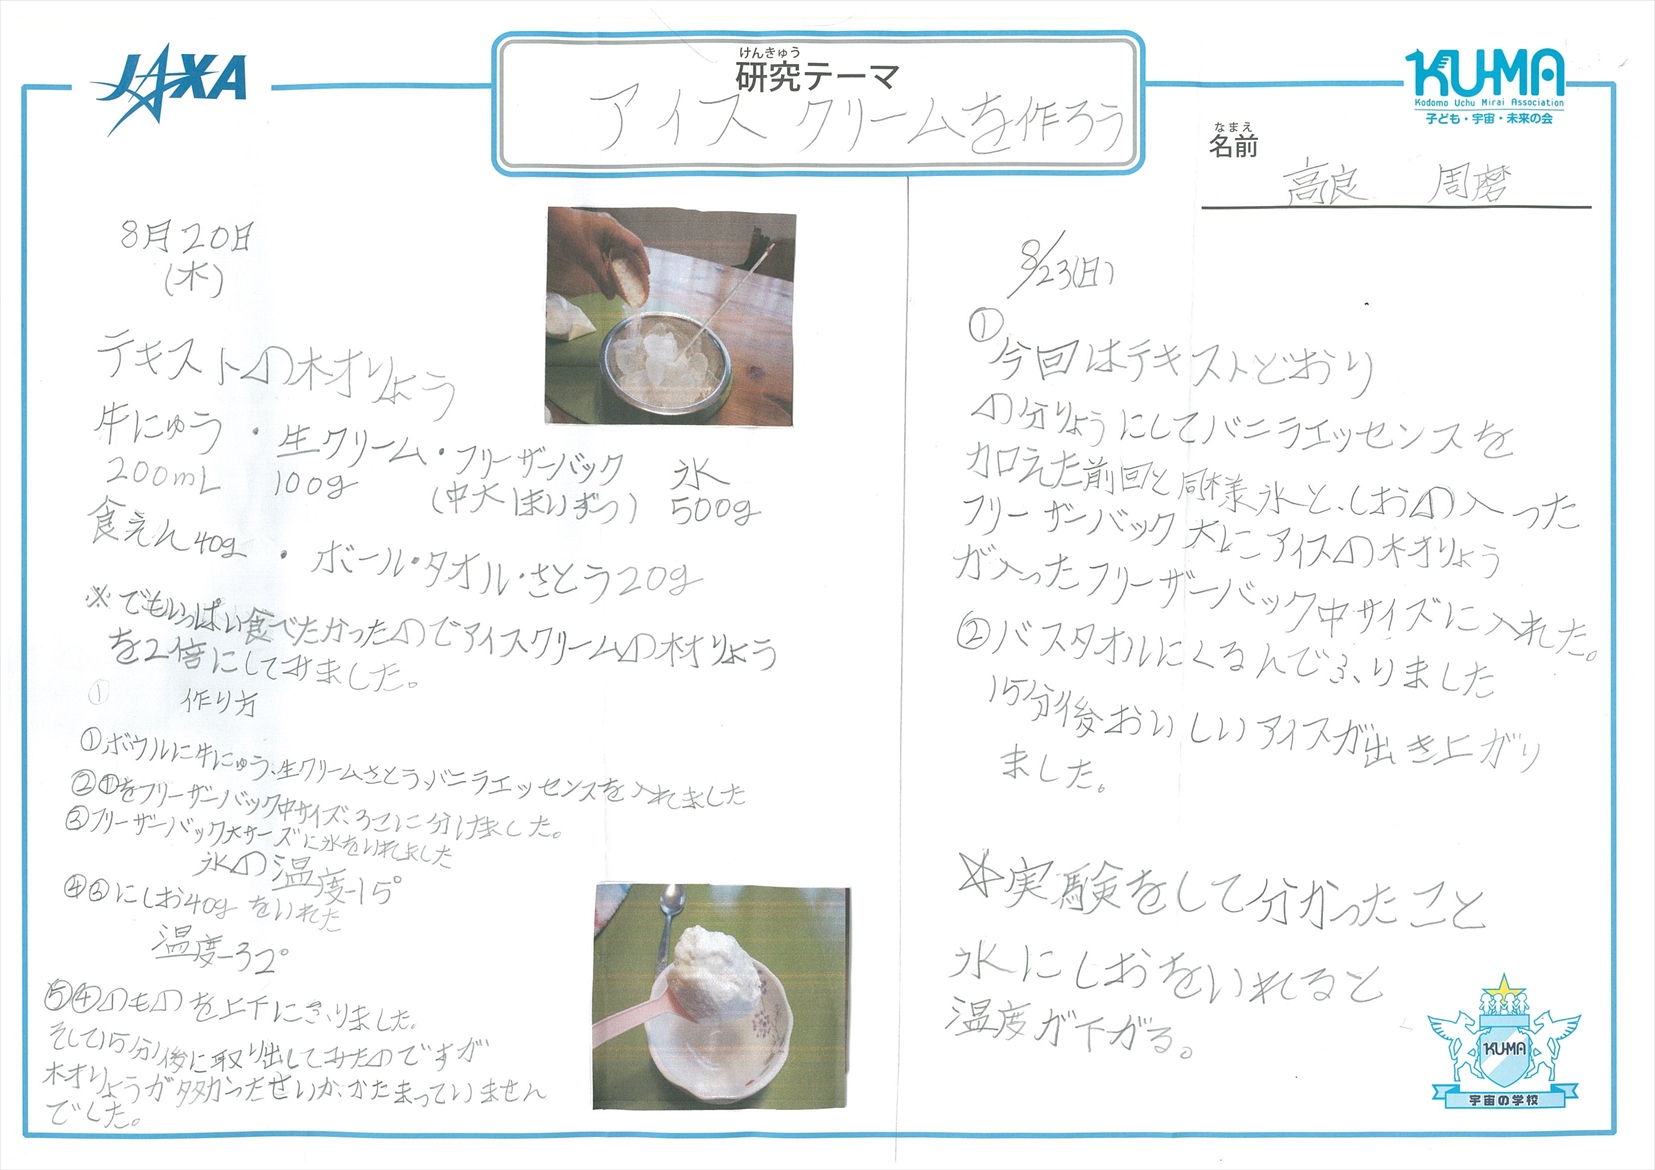 JAXA
けんきゅう
研究テーマ
アイスクリームを作ろう
KU-MA
Kodomo Uchu Mirai Association
子ども・宇宙・未来の会
なまえ
名前
高良 周磨
8月20日
(木)
テキストの材りょう
牛にゅう・生クリーム・フリーザーバック 氷
200mL 100g (中大1まいずつ) 500g
食えん40g・ボール・タオル・さとう20g
※でもいっぱい食べたかったのでアイスクリームの材りょう
を2倍にしてみました。
作り方
①ボウルに牛にゅう、生クリームさとう、バニラエッセンスを入れました
②①をフリーザーバック中サイズ、3こに分けました。
③フリーザーバック大サーズに氷をいれました
氷の温度-15°
④③にしお40gをいれた
温度-32°
⑤④のものを上下にふりました。
そして15分後に取り出してみたのですが
材りょうが多かったせいか、かたまっていません
でした。
8/23(日)
①今回はテキストどおり
の分りょうにしてバニラエッセンスを
加えた前回と同様氷と、しおの入った
フリーザーバック大にアイスの材りょう
が入ったフリーザーバック中サイズに入れた。
②バスタオルにくるんでふりました
15分後おいしいアイスが出き上がり
ました。
☆実験をして分かったこと
氷にしおをいれると
温度が下がる。
KU-MA
宇宙の学校